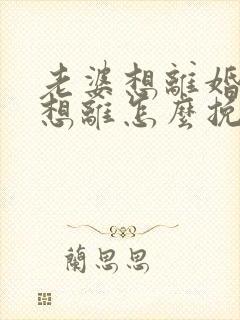 老婆想離婚
想離怎麼挽
蘭思思